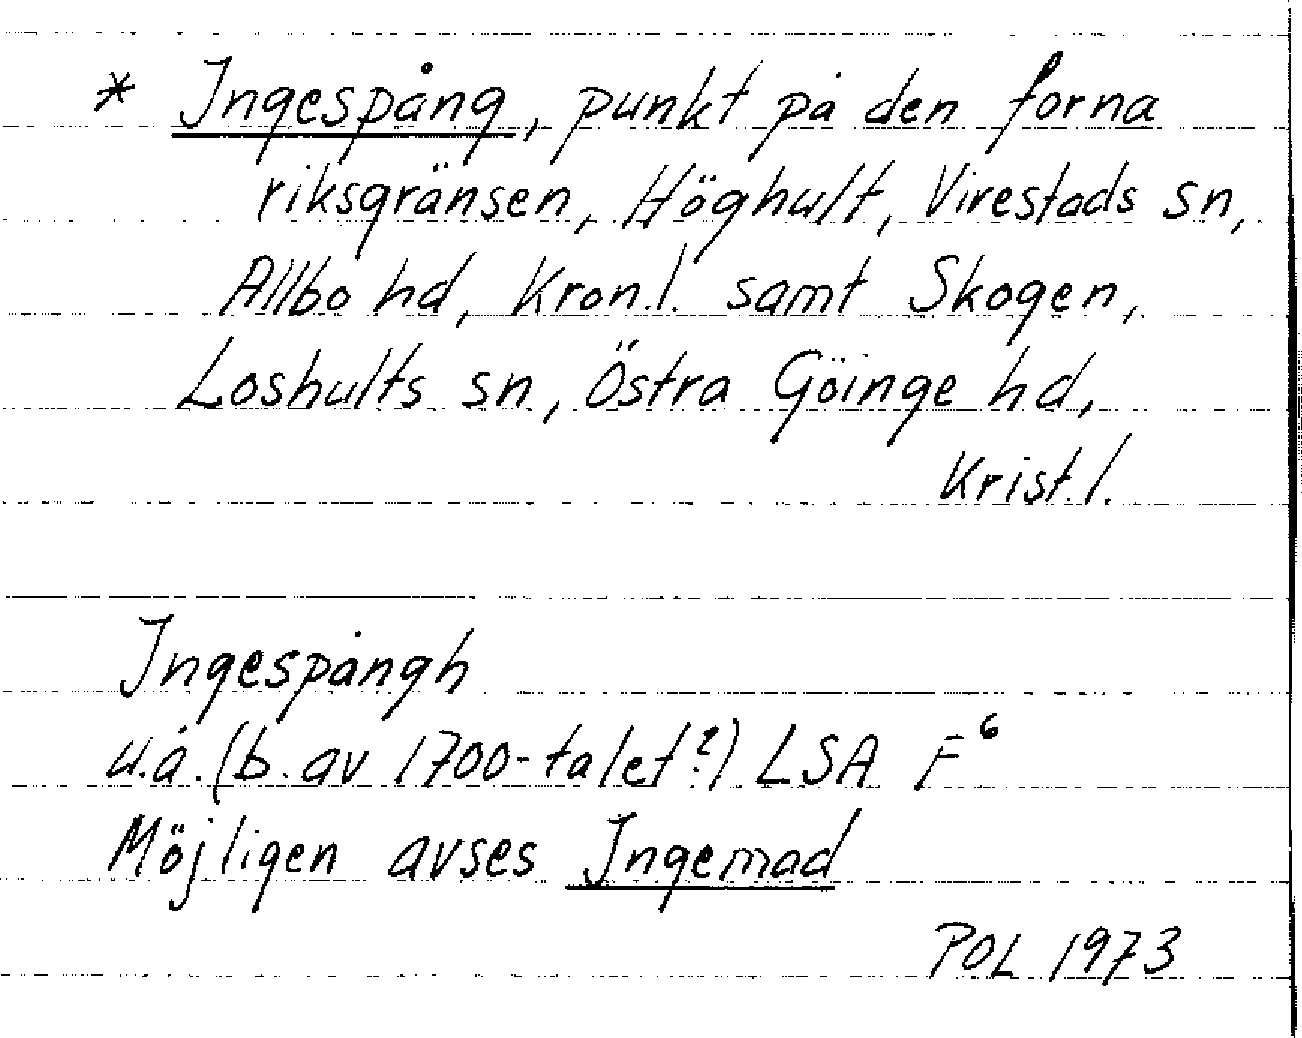 * Ingespång, punkt på den forna
riksgränsen, Höghult, Virestads sn,
Allbo hd, Kron.l. samt Skogen,
Loshults sn, Östra Göinge hd,
Krist.l.
Ingespångh
u.å. (b. av 1700-talet?) LSA F⁶
Möjligen avses Ingemad
POL 1973